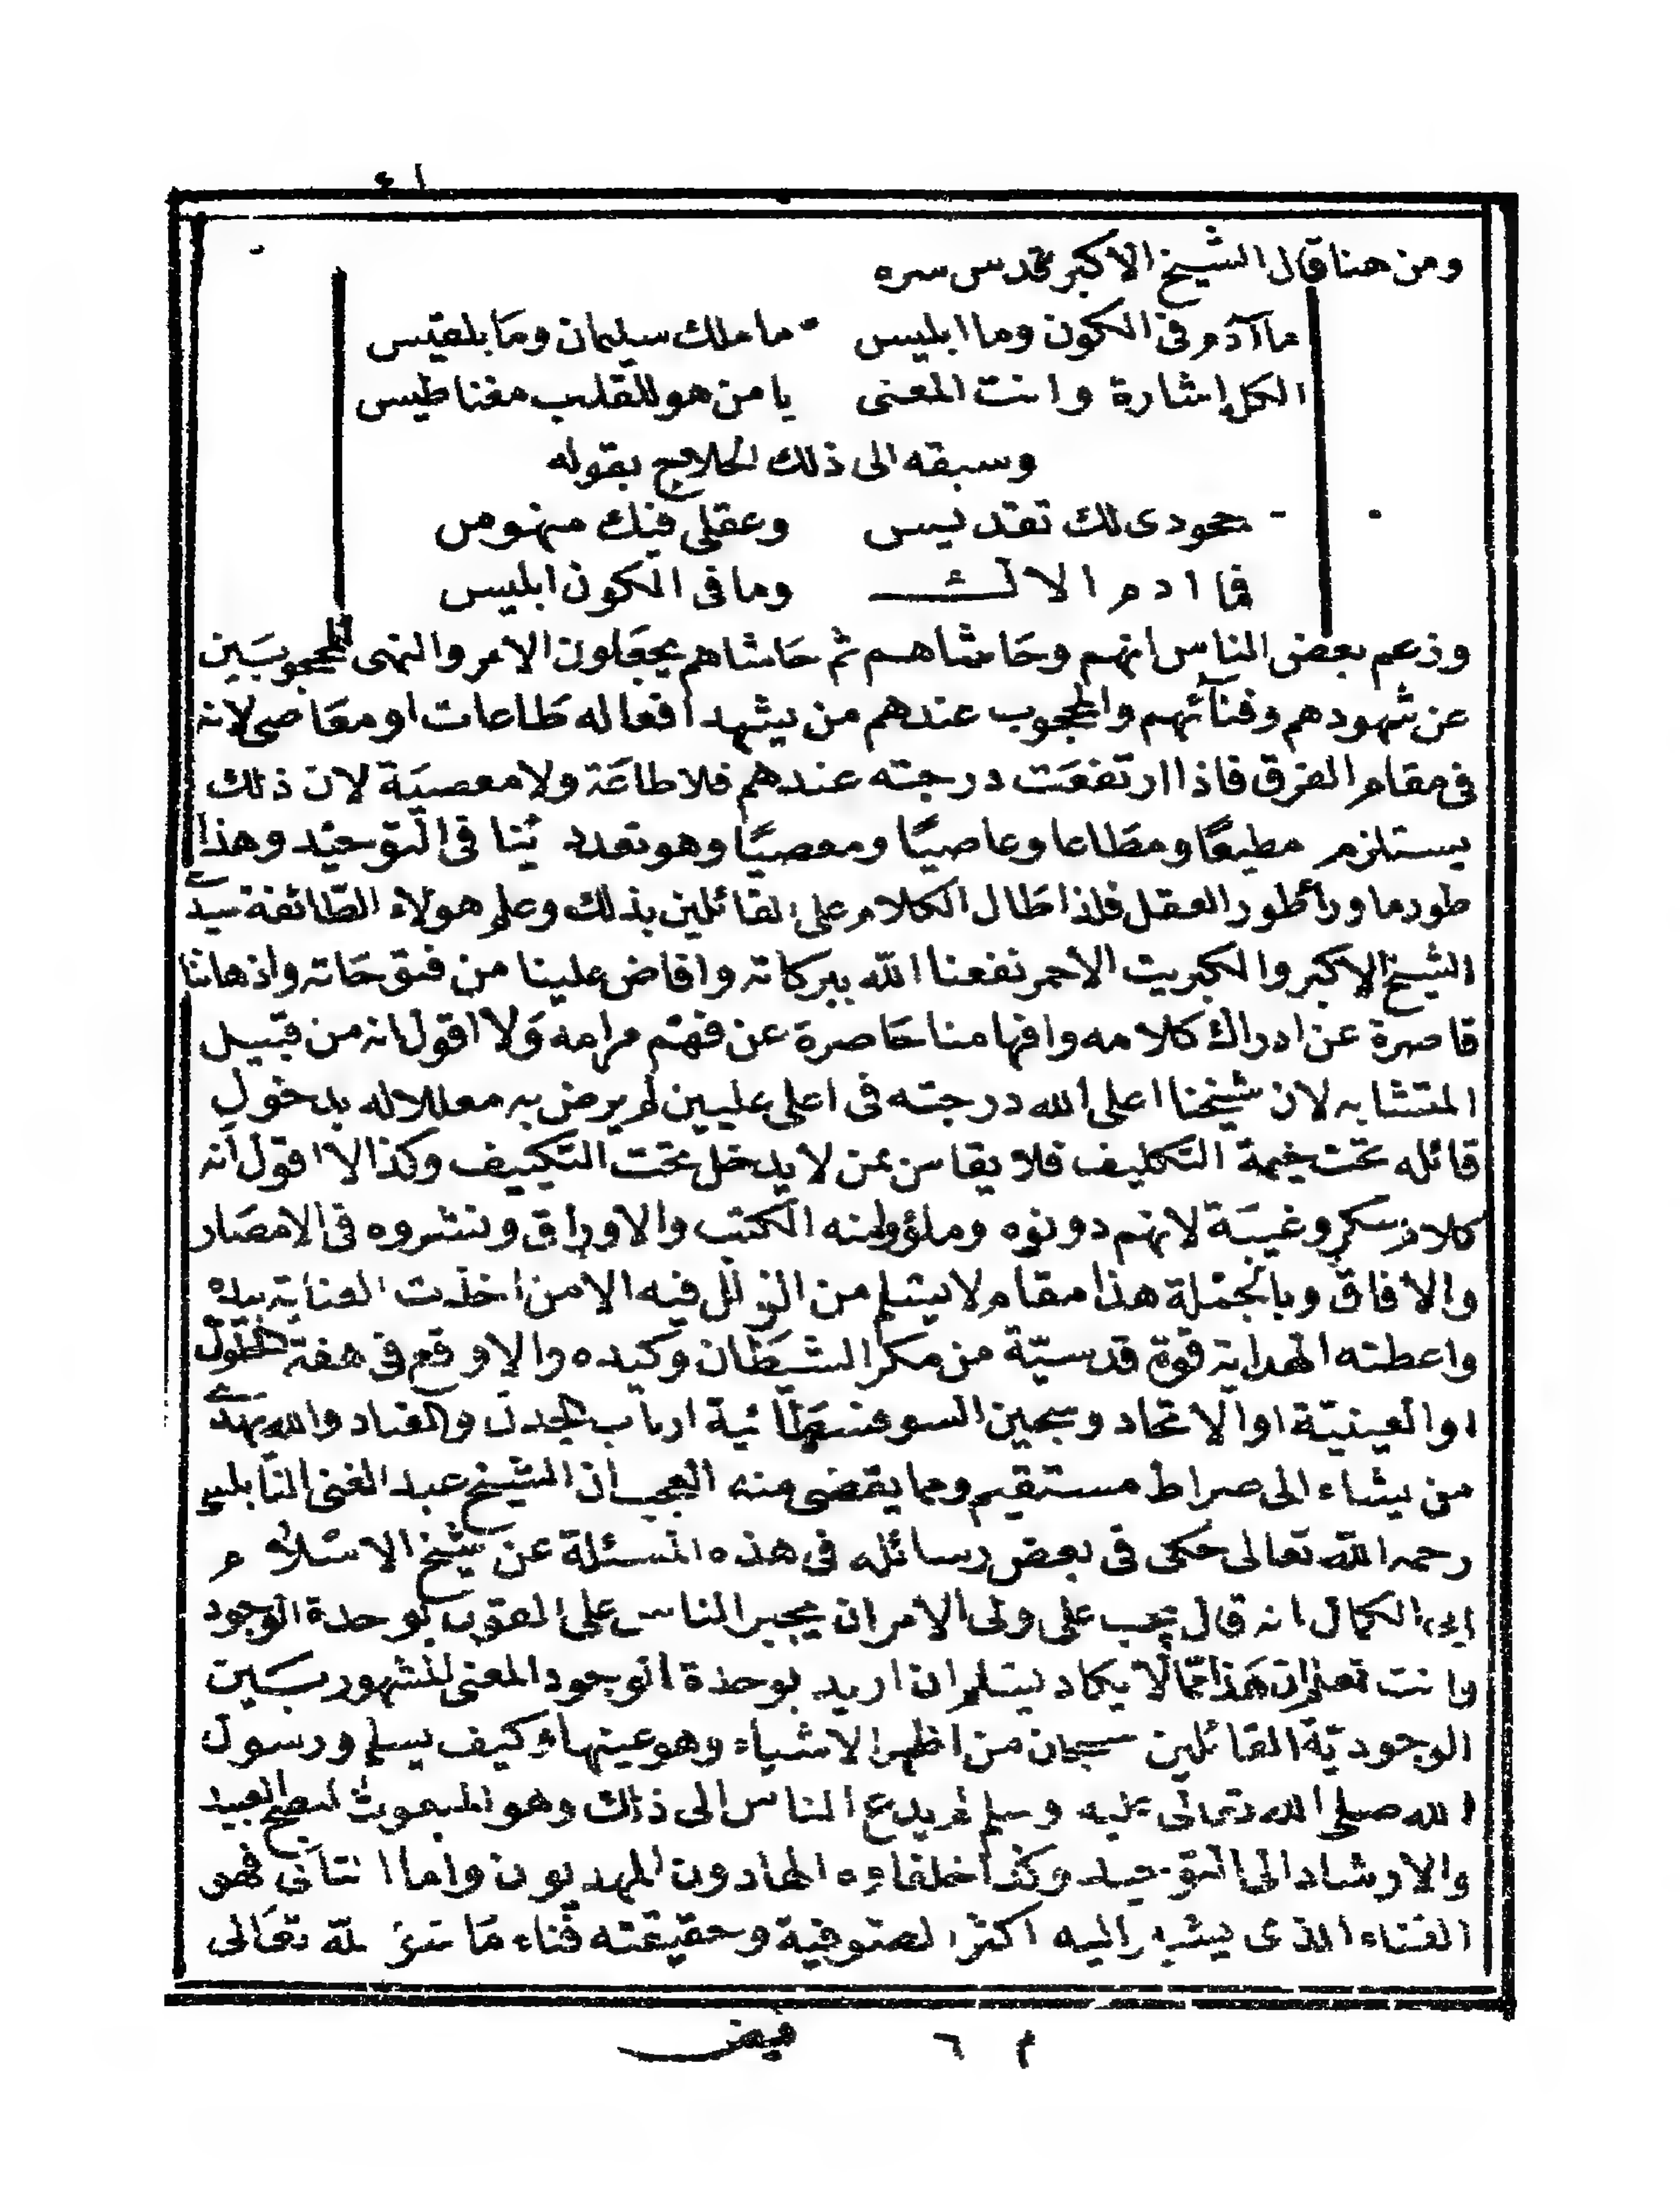 ٤١
ومن هنا قال الشيخ الاكبر قدس سره
ما آدم فى الكون وما ابليس ما ملك سليمان وما بلقيس
الكل إشارة وانت المعنى يا من هو للقلب مغناطيس
وسبقه الى ذلك الحلاج بقوله
جحودى لك تقديس وعقلى فيك منهوس
فما ادم الاك وما فى الكون ابليس
وزعم بعض الناس انهم وحاشاهم ثم حاشاهم يجعلون الامر والنهى للمحجوبين
عن شهودهم وفنآئهم والمحجوب عندهم من يشهد افعاله طاعات او معاصى لانه
فى مقام الفرق فاذا ارتفعت درجته عندهم فلا طاعة ولا معصية لان ذلك
يستلزم مطيعًا ومطاعا وعاصيًا ومعصيًا وهو تعدد ينا فى التوحيد وهذا
طور ما ورأ طور العقل فلذا طال الكلام على القائلين بذلك وعلم هولاء الطائفة سيد
الشيخ الاكبر والكبريت الاحمر نفعنا الله ببركاته وافاض علينا من فتوحاته واذهاننا
قاصرة عن ادراك كلامه وافهامنا حاصرة عن فهم مرامه ولا اقول انه من قبيل
المتشابه لان شيخنا اعلى الله درجته فى اعلى عليين لم يرض به معللا له بدخول
قائله تحت خيمة التكليف فلا يقاس بمن لا يدخل تحت التكييف وكذا لا اقول انه
كلام سكر وغيبة لانهم دونوه وملؤا منه الكتب والاوراق ونشروه فى الامصار
والافاق وبالجملة هذا مقام لا يسلم من الزلل فيه الا من اخذت العناية بيده
واعطته الهداية قوة قدسيّة من مكر الشيطان وكيده والا وقع فى هفة الحلول
او العينيّة او الاتحاد وسجين السوفسطائية ارباب الجدل والعناد والله يهدے
من يشاء الى صراط مستقيم ومما يقضى منه العجب ان الشيخ عبد الغنى النابلسى
رحمه الله تعالى حكى فى بعض رسائله فى هذه المسئلة عن شيخ الاسلام
ابن الكمال انه قال يجب على ولى الامر ان يجبر الناس على القول بوحدة الوجود
وانت تعلم ان هذا ممّا لا يكاد يسلم ان اريد بوحدة الوجود المعنى المشهور بين
الوجوديّة القائلين سبحان من اظهر الاشياء وهو عينها وكيف يسلم ورسول
الله صلى الله تعالى عليه وسلم لم يدع الناس الى ذلك وهو المبعوث لنصح العبيد
والارشاد الى التوحيد وكذا خلفاؤه الهادون المهديون واما الثانى فهو
الفناء الذى يشير اليه اكثر الصوفية وحقيقته فناء ما سوى لله تعالى
م ٦ فيض